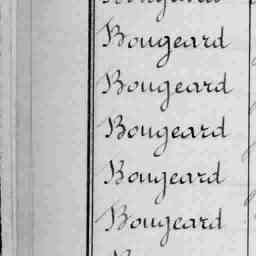 Bougeard
Bougeard
Bougeard
Bougeard
Bougeard
Bougeard